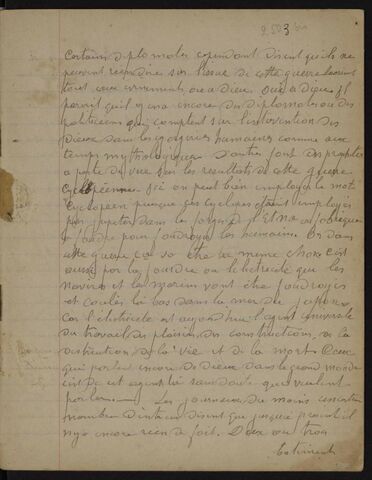 Certains diplomates cependant disent qu'ils ne
peuvent rien dire sur l'issue de cette guerre laissent
tout aux evenements ou a dieu. Oui a dieu Il
parait qu'il y a encore des diplomates ou des
politiciens qui comptent sur l'intervention des
Dieux dans les égorgeries humaines comme aux
temps mythologiques. D'autres font des propheties
a perte de vue sur les resultats de cette guerre
cyclopéenne si on peut bien employer le mot
Cyclopeen puisque les cyclopes étaient employes
par Jupiter dans les forges de l'Etna a fabriquer
la foudre pour foudroyer les humains Or dans
cette guerre ca va etre la meme chose c'est
aussi par la foudre ou l'electricité que les
navires et les marins vont être foudroyes
et coulés la bas dans la mer du Japon
Car l'électricité est aujourd'hui l'agent universel
du travail des plaisirs des constructions, de la
destruction de la vie et de la mort. Ceux
qui parlent encore de Dieux dans le grand monde
c'est de cet agent là sans doute que veulent
parler. Les journaux du moins un certain
nombre d'entre eux disent que jusqu'a present il
n'y a encore rien de fait. Deux ou trois
batiments